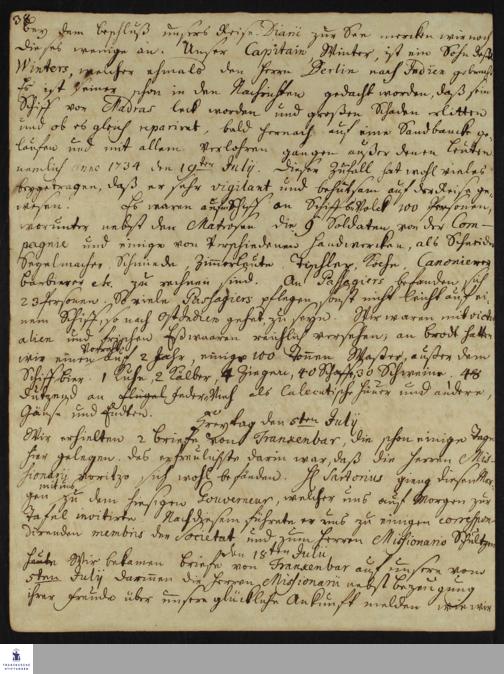 38
bey dem beschluß unsers Reise Diarii zur See mercken wir noch
dieses wenige an. Unser Capitain Winter, ist ein Sohn deß
Winters, welcher ehmals den Herrn Bertlin nach Indien gebracht
Es ist seiner schon in den Nachrichten gedacht worden, daß sein
Schiff vor Madras leck worden und großen Schaden erlitten
und ob es gleich reparirt, bald hernach auf eine Sandbancke ge-
laufen und mit allem verlohren gangen außer denen Leuten
nemlich Anno 1734 den 19ten July. Dieser Zufall hat wohl vieles
beygetragen, daß er sehr vigilant und behutsam auf der Reise ge-
wesen. Es waren auf Schiff an Schiffs Volck 100 Personen,
worunter nebst den Matrosen die 9 Soldaten, von der Com-
pagnie und einige von verschiedenen Handwercken, als Schneider
Segelmacher, Schmiede Zimmerleute Tischler, Köche, Canonierer
barbierer etc. zu rechnen sind. An Passagiers befanden sich
23 Personen. So viele Passagiers pflegen sonst nicht leicht auf ei-
nem Schiff, so nach Ostindien gehet, zu seyn. Wir waren mit victu
alien und frischen Eßwaaren reichlich versehen, an brodt hatten
wir einen Vorrath auf 2 Jahr, einige 100 Tonen Waßer, außer dem
Schiffbier. 1 Kuhe, 2 Kälber 4 Ziegen, 40 Schafe, 30 Schweine. 48
Dutzend an Feder Vieh als Calecutsche Hüner und andere,
Gänse und Endten.
Freytag den 5ten July
Wir erhielten 2 briefe von Tranxenbar, die schon einige Tage
hier gelegen. das erfreulichste darin war, daß die Herren Mis-
sionarii voritzo sich wohl befanden. H Sartorius gieng diesen Mor-
gen mit uns zu dem hiesigen Gouverneur, welcher uns auf Morgen zur
Tafel invitirte. Nachdiesem führete er uns zu einigen correspon-
direnden membris der Societat und zum Herren Missionario Schultzen
den 18ten Julii
Heute Wir bekamen briefe von Tranxenbar auf unsere vom
5ten July darinnen die Herren Missionarii nebst bezeugung
ihrer Freude über unsere glückliche Ankunft melden wie wir
FRANCKESCHE
STIFTUNGEN